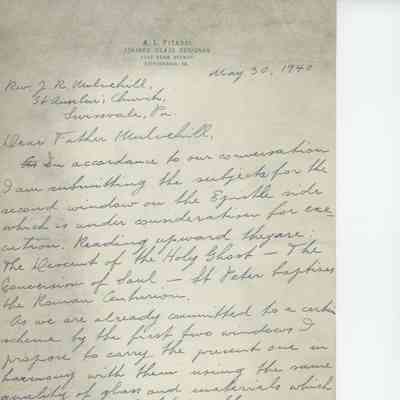 A. L. Pitassi
STAINED GLASS DESIGNER
PITTSBURGH, PA.
May 30, 1940
Rev. J. R. Mulvehill,
St Anselm's Church,
Swissvale, Pa.
Dear Father Mulvehill,
In accordance to our conversation
I am submitting the subjects for the
second window on the Epistle side
which is under consideration for exe-
cution. Reading upward they are:
The Descent of the Holy Ghost — The
Conversion of Saul — St Peter baptises
the Roman Centurion.
As we are already committed to a certain
scheme by the first two windows I
propose to carry the present one in
harmony with them using the same
quality of glass and materials which